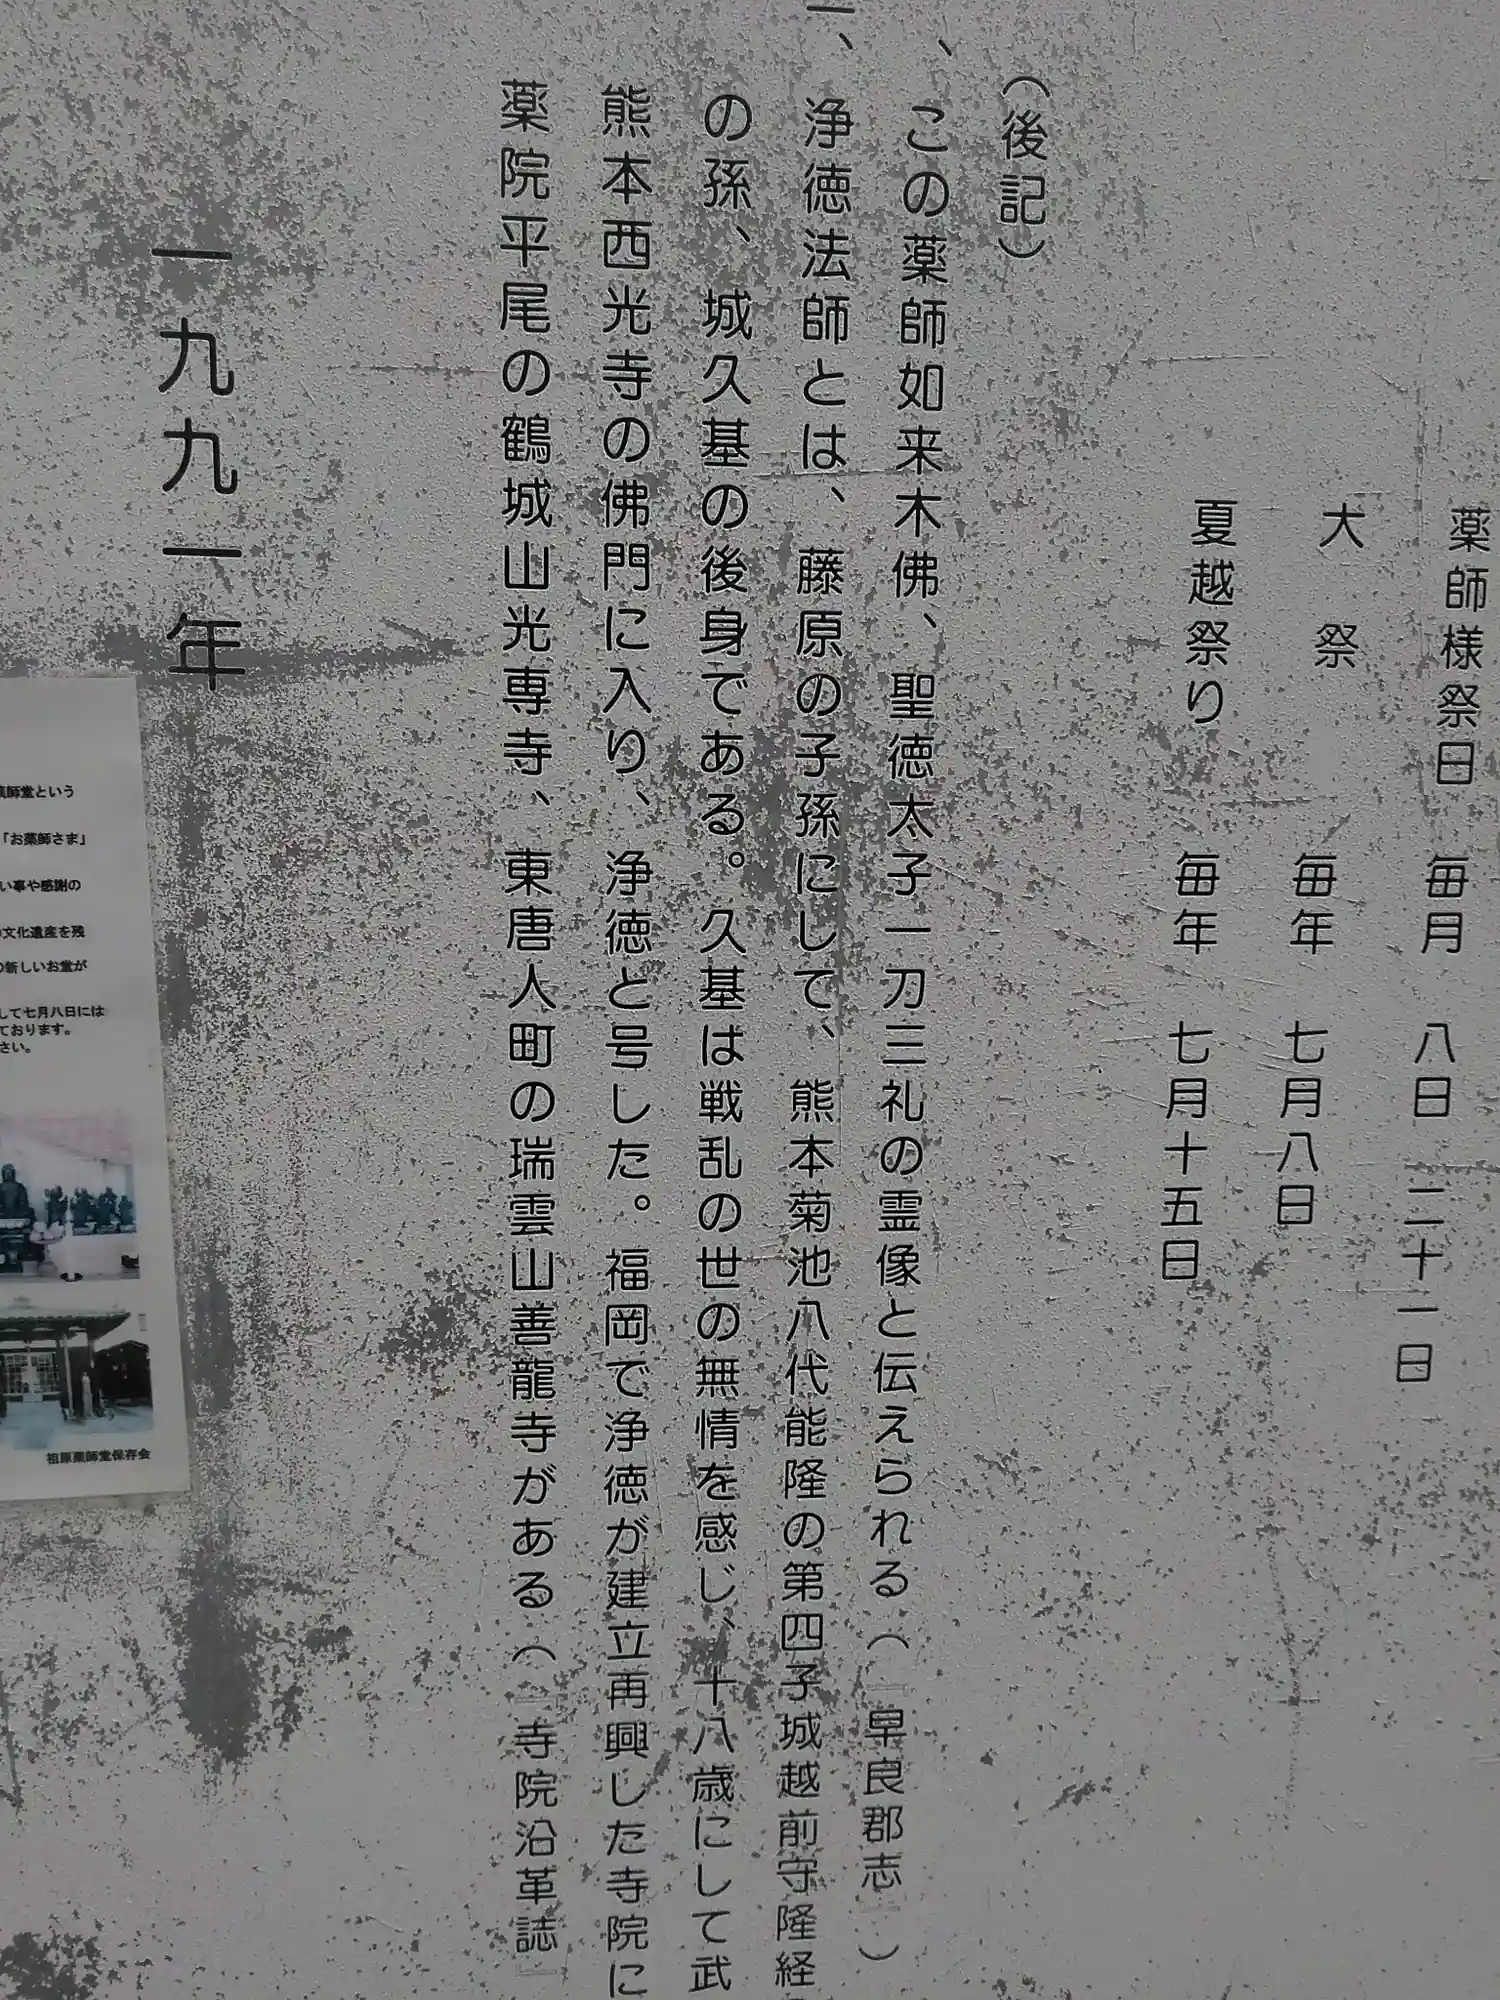 薬師様祭日　毎月　八日　二十一日
大　祭　毎年　七月八日
夏越祭り　毎年　七月十五日
（後記）
、この薬師如来木佛、聖徳太子一刀三礼の霊像と伝えられる（『早良郡志』）
一、浄徳法師とは、藤原の子孫にして、熊本菊池八代能隆の第四子城越前守隆経
の孫、城久基の後身である。久基は戦乱の世の無情を感じ、十八歳にして武
熊本西光寺の佛門に入り、浄徳と号した。福岡で浄徳が建立再興した寺院に
薬院平尾の鶴城山光専寺、東唐人町の瑞雲山善龍寺がある（『寺院沿革誌』
一九九一年
薬師堂という
「お薬師さま」
い事や感謝の
文化遺産を残
の新しいお堂が
して七月八日には
ております。
さい。
祖原薬師堂保存会